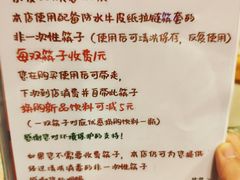 本店使用配备防水牛皮纸拉链套的
非一次性筷子(使用后可清洗保存,反复使用)
每双筷子收费1元
您在购买使用后可带走,
下次到店消费并自带此筷子
换购新品饮料可减5元
(一双筷子对应优惠换购饮料一瓶)
感谢您对环境保护的支持!
如果您不需要收费筷子,本店仍可为您提供
经过清洗消毒的非一次性筷子